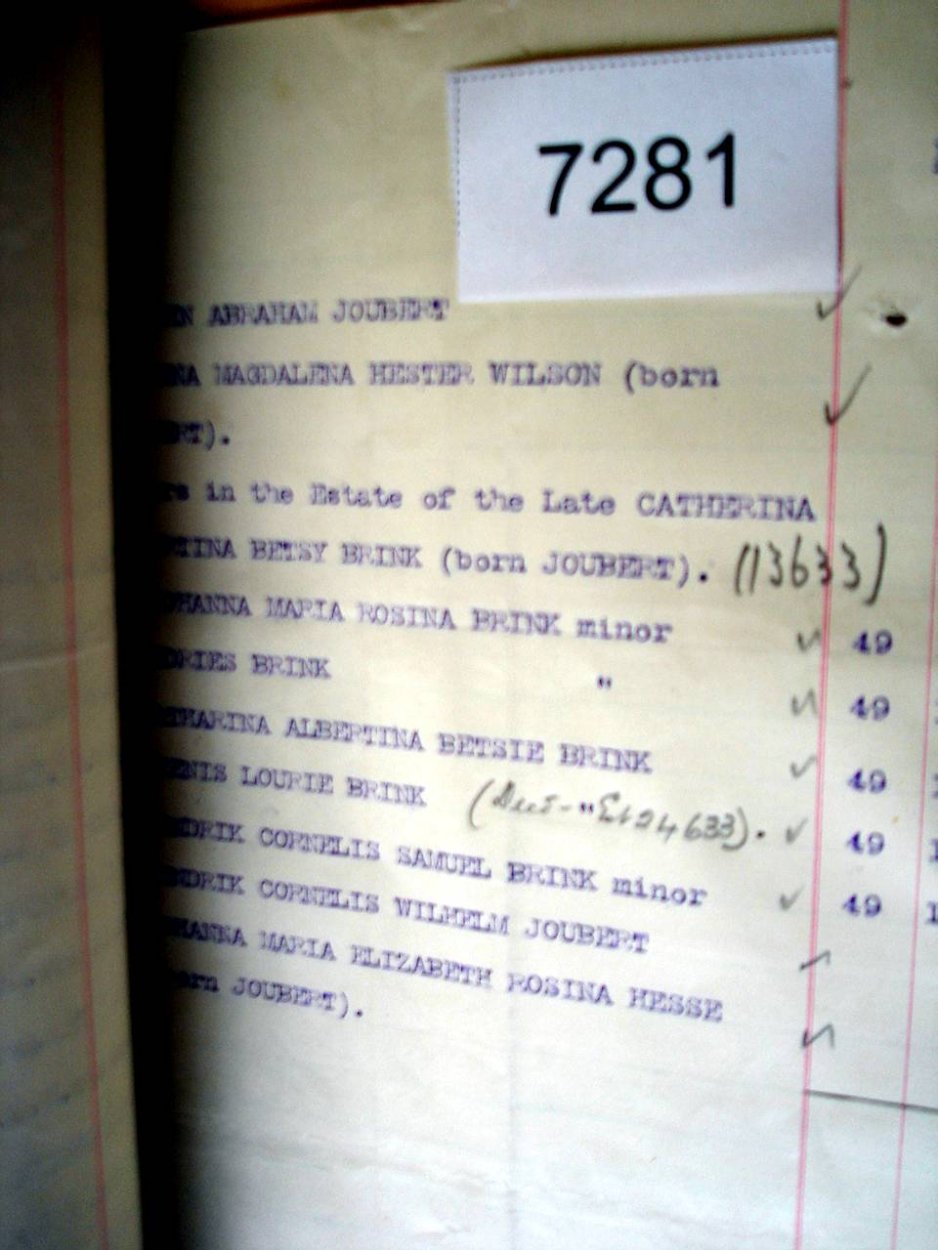 7281
EN ABRAHAM JOUBERT
NA MAGDALENA HESTER WILSON (born
ERT).
rs in the Estate of the Late CATHERINA
TINA BETSY BRINK (born JOUBERT). (13633)
OHANNA MARIA ROSINA BRINK minor 49
DRIES BRINK " 49
THARINA ALBERTINA BETSIE BRINK 49
ENIS LOURIE BRINK 24633). 49
NDRIK CORNELIS SAMUEL BRINK minor 49
NDRIK CORNELIS WILHELM JOUBERT
HANNA MARIA ELIZABETH ROSINA HESSE
orn JOUBERT).